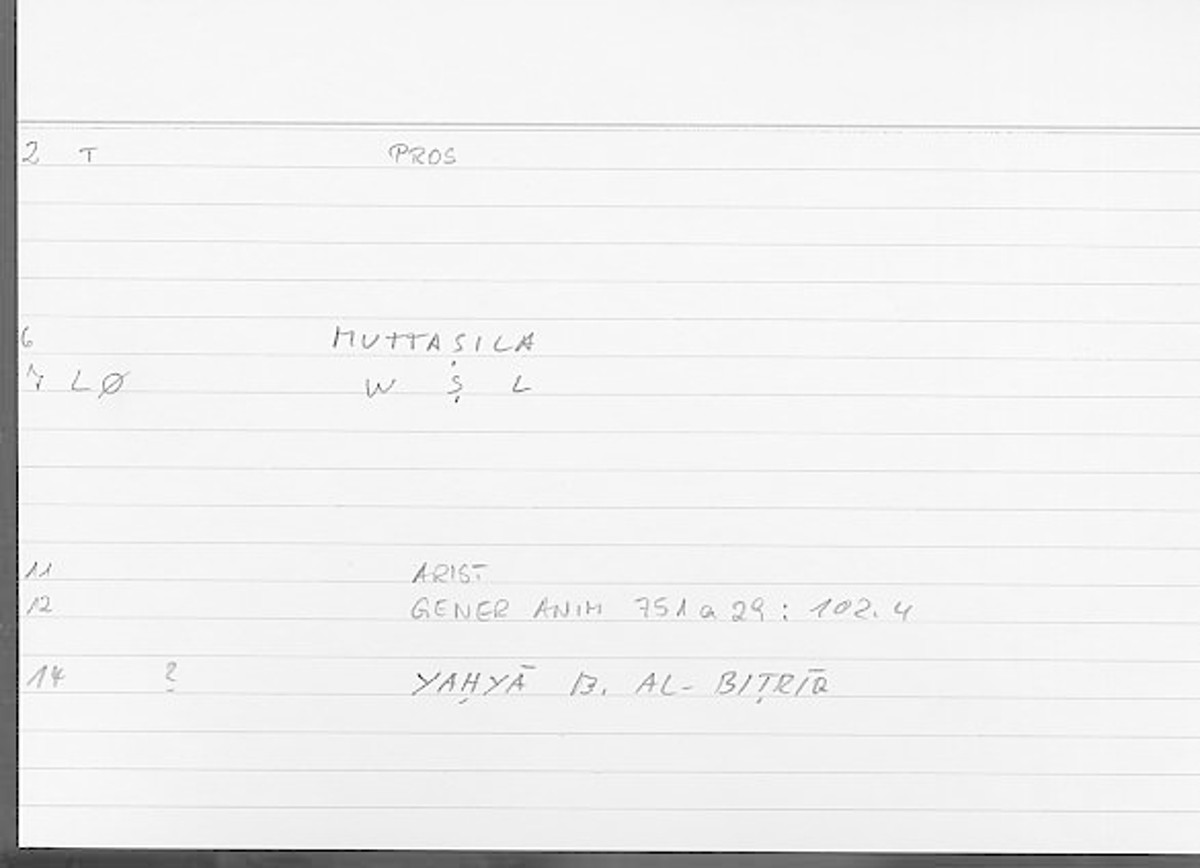 2 T PROS
6 MUTTAṢILA
7 LØ W Ṣ L
11 ARIST
12 GENER ANIM 751a29: 102.4
14 ? YAḤYĀ B. AL-BIṬRĪQ